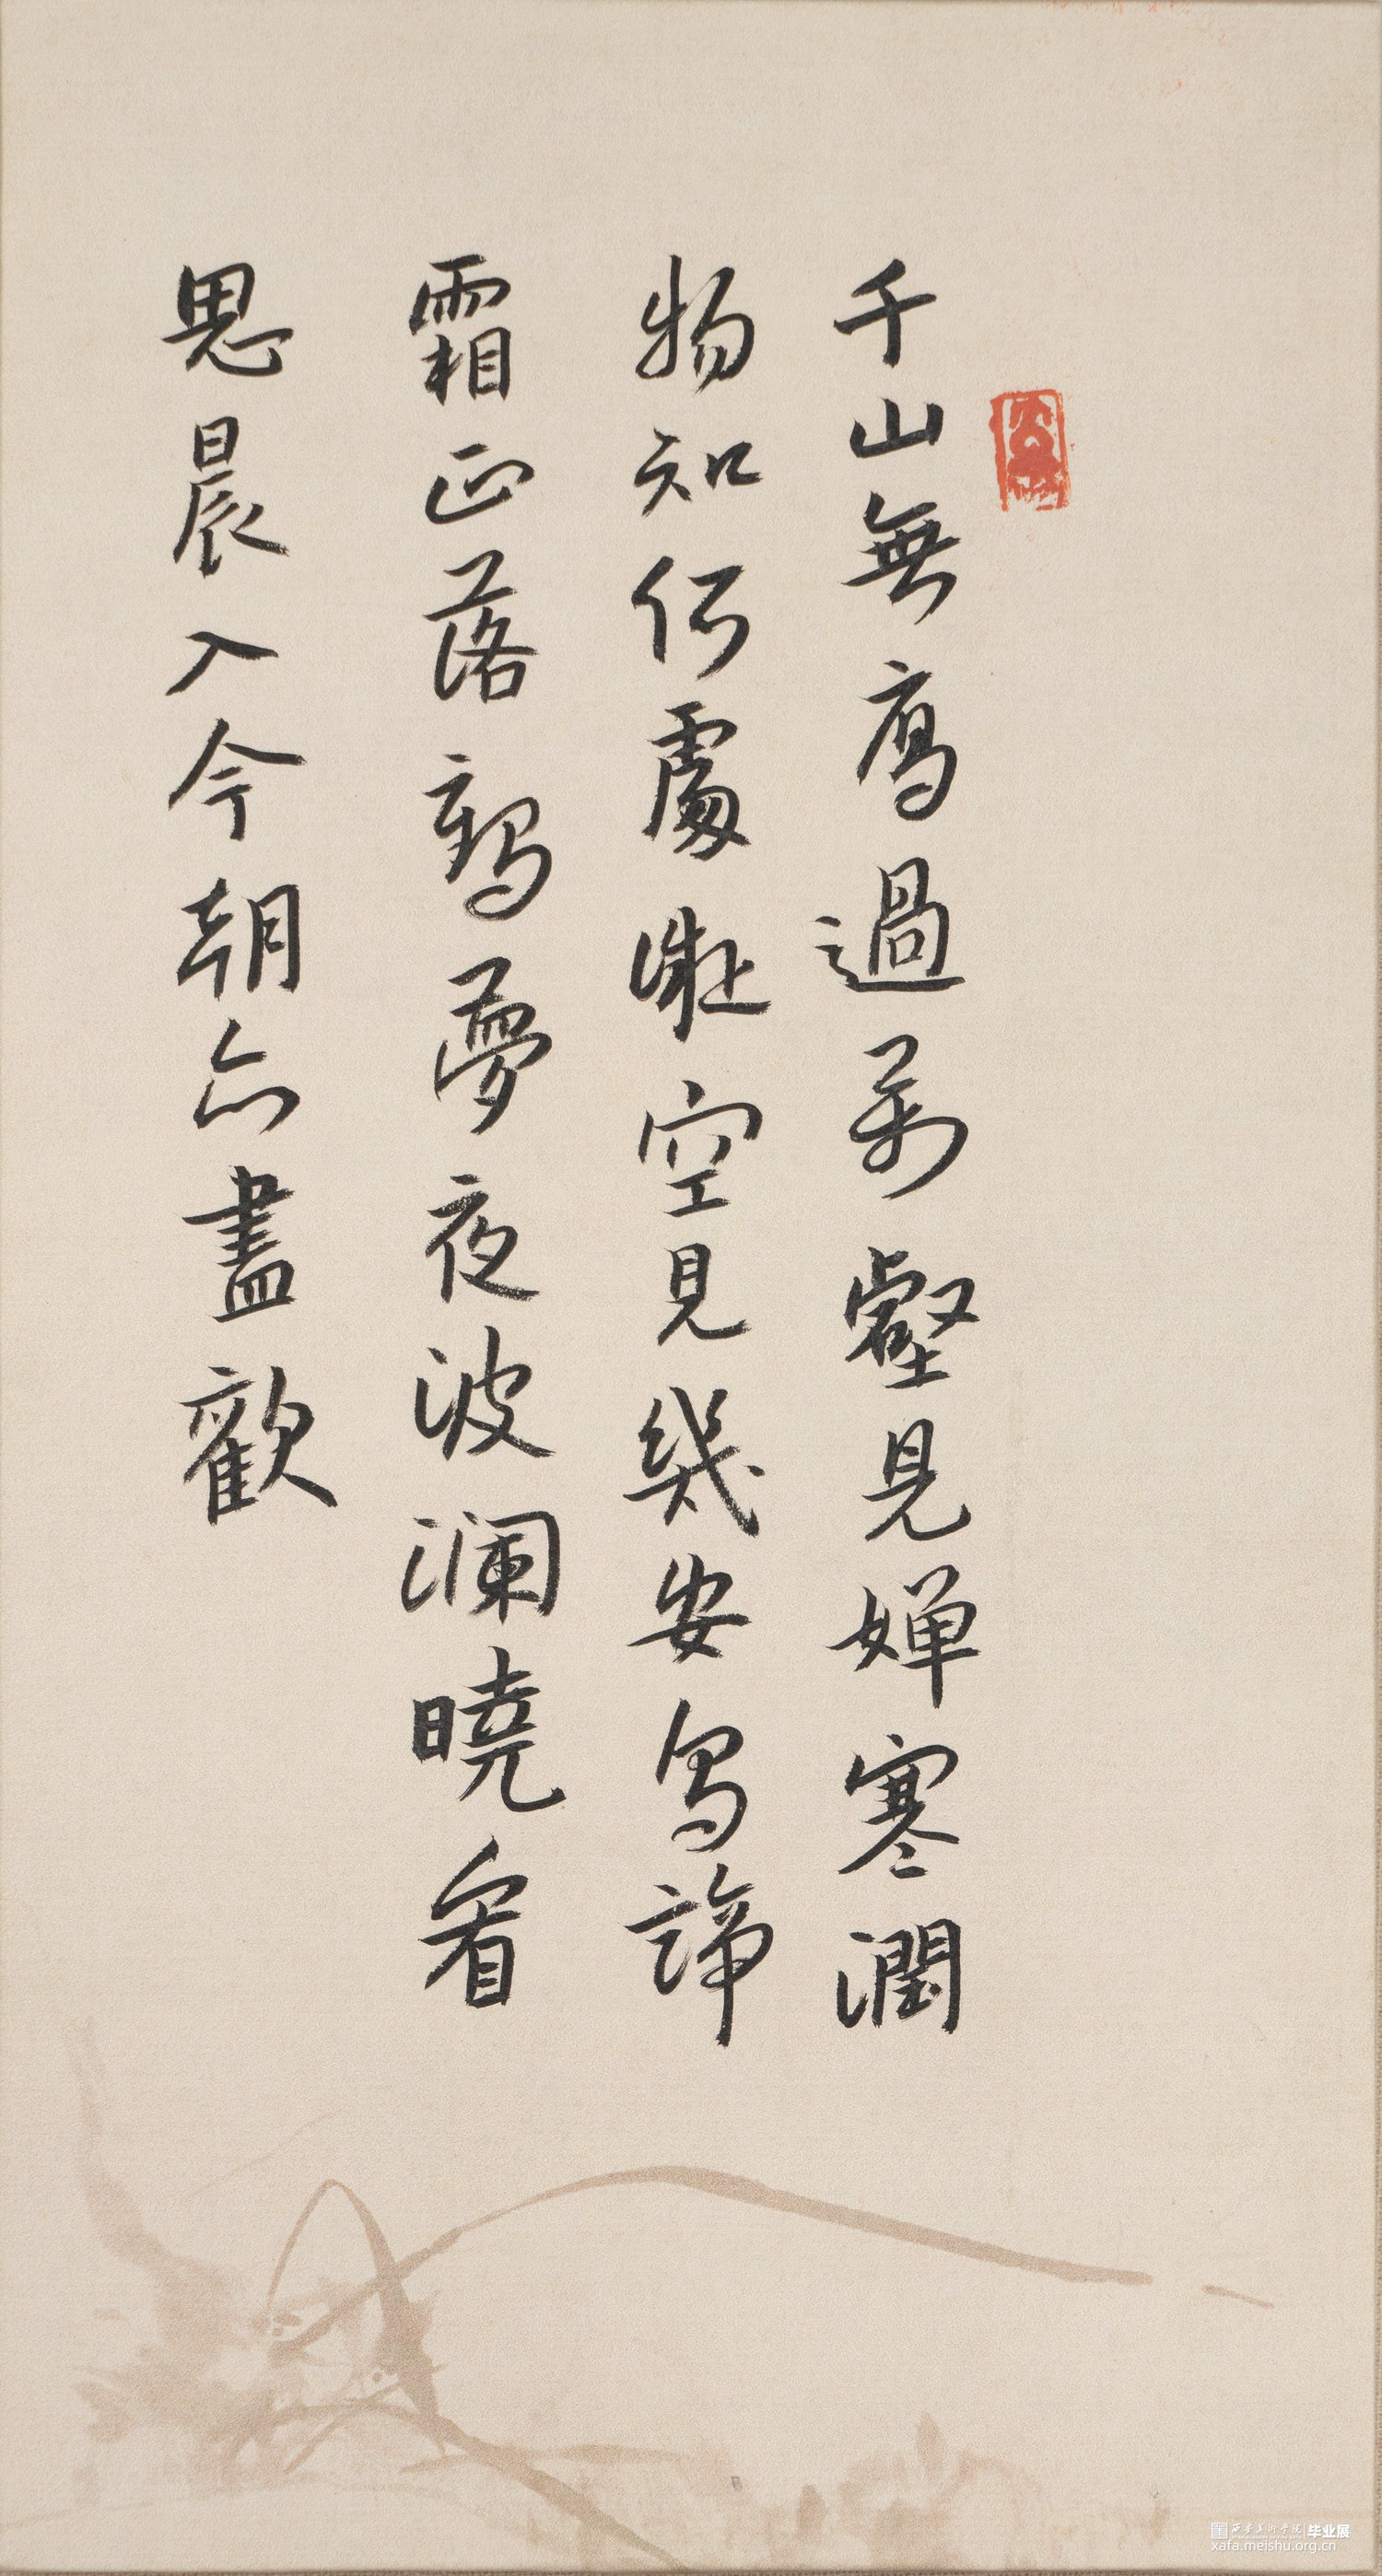 千山無鳫過万壑見婵寒潤
物知何處凝空見幾安鳥諦
霜正落鹤夢夜波澜曉看
思晨入今朝亦盡歡
西安美术学院 毕业展
xafa.meishu.org.cn